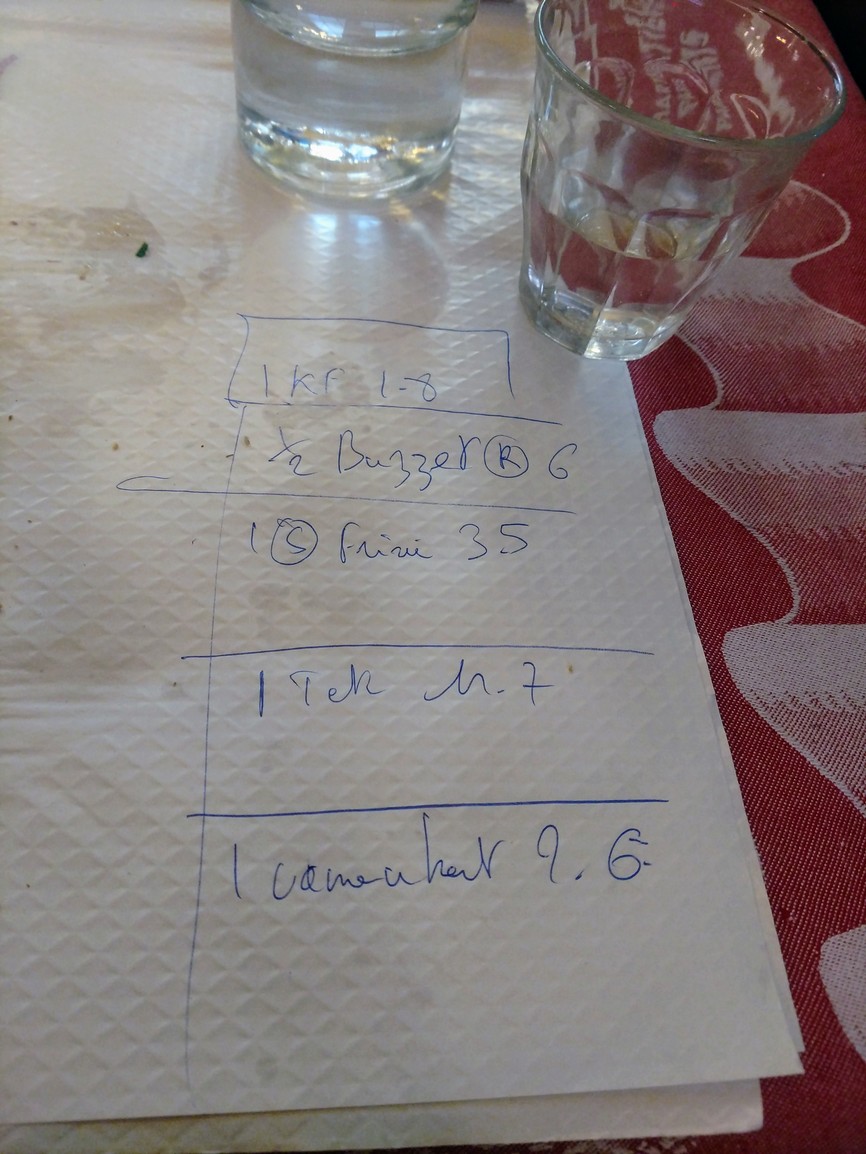 1 KF 1-8
1/2 Buzzet R 6
1 S Frisé 35
1 Tek M. 7
1 camembert 9. 6